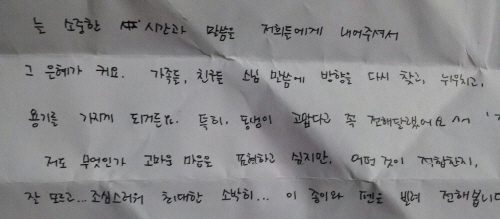 늘 소중한 시간과 말씀을 저희들에게 내어주셔서
그 은혜가 커요. 가족들, 친구들 스님 말씀에 방향을 다시 찾고, 뉘우치고,
용기를 가지게 되거든요. 특히, 동생이 고맙다고 꼭 전해달랬어요 ^^
저도 무엇인가 고마운 마음을 표현하고 싶지만, 어떤 것이 적합한지,
잘 모르고... 조심스러워 최대한 소박히... 이 종이와 펜을 빌려 전해봅니다